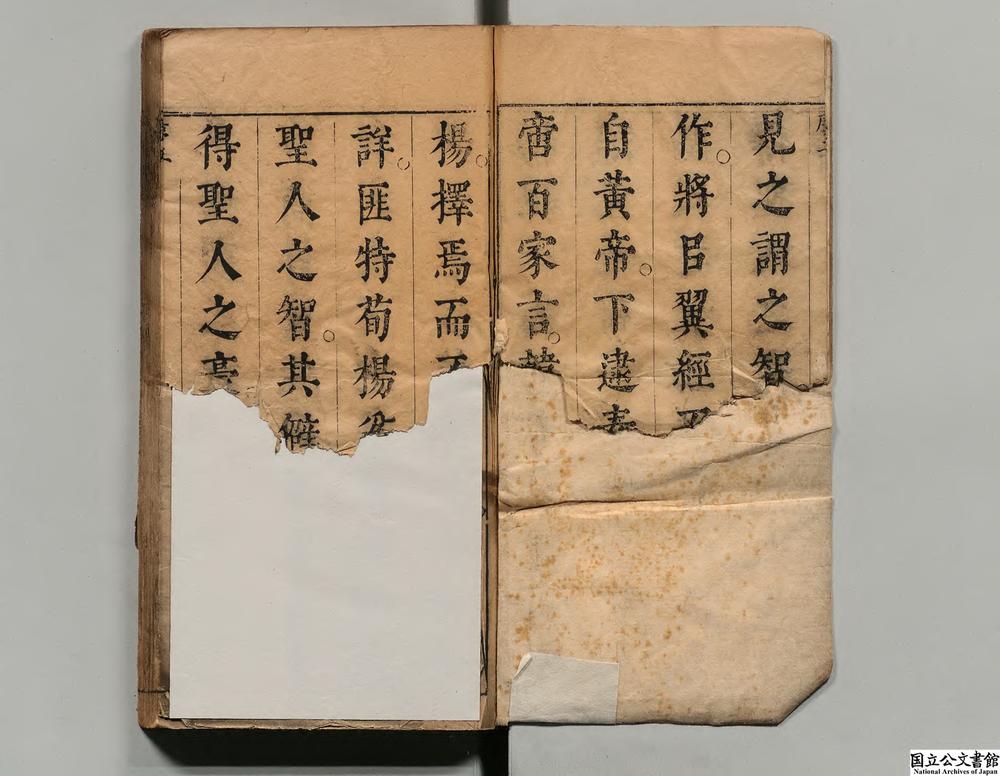 見之謂之智
作。將㠯翼經
自黃帝。下逮
啻百家言。
楊。擇焉而
詳。匪特荀楊
聖人之智。其
得聖人之
国立公文書館
National Archives of Japan